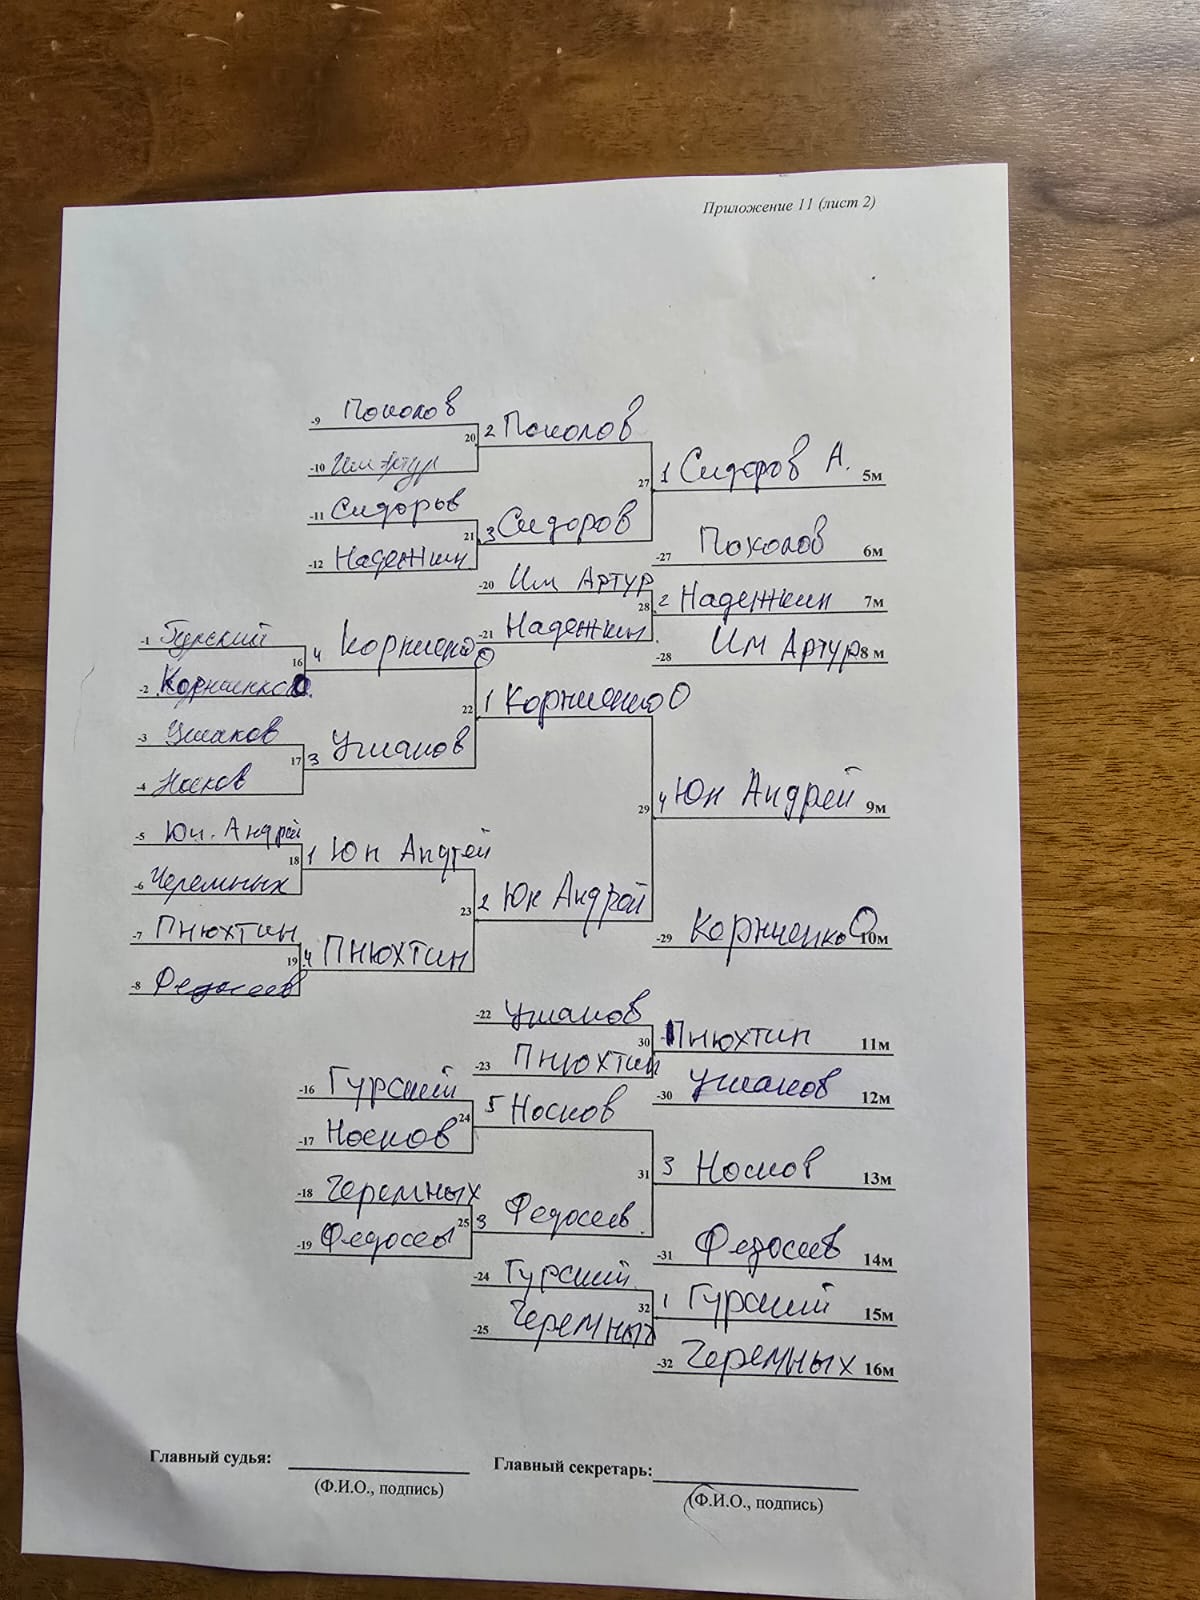 Приложение 11 (лист 2)
-9 Поколов
20 2 Поколов
-10 Им Артур
27 1 Сидоров А. 5м
-11 Сидоров
21 3 Сидоров
-12 Надежкин
-27 Поколов 6м
-20 Им Артур
28 2 Надежкин 7м
-21 Надежкин
-28 Им Артур 8 м
-1 Гурский
16 4 Корниенко О
-2 Корниенко О.
22 1 Корниенко О
-3 Ушаков
17 3 Ушаков
-4 Носков
29 4 Юн Андрей 9м
-5 Юн. Андрей
18 1 Юн Андрей
-6 Черемных
23 2 Юн Андрей
-7 Пнюхтин
19 4 Пнюхтин
-8 Федосеев
-29 Корниенко О 10м
-22 Ушаков
30 Пнюхтин 11м
-23 Пнюхтин
-30 Ушаков 12м
-16 Гурский
24 5 Носков
-17 Носков
31 3 Носков 13м
-18 Черемных
25 3 Федосеев
-19 Федосеев
-31 Федосеев 14м
-24 Гурский
32 1 Гурский 15м
-25 Черемных
-32 Черемных 16м
Главный судья:
(Ф.И.О., подпись)
Главный секретарь:
(Ф.И.О., подпись)